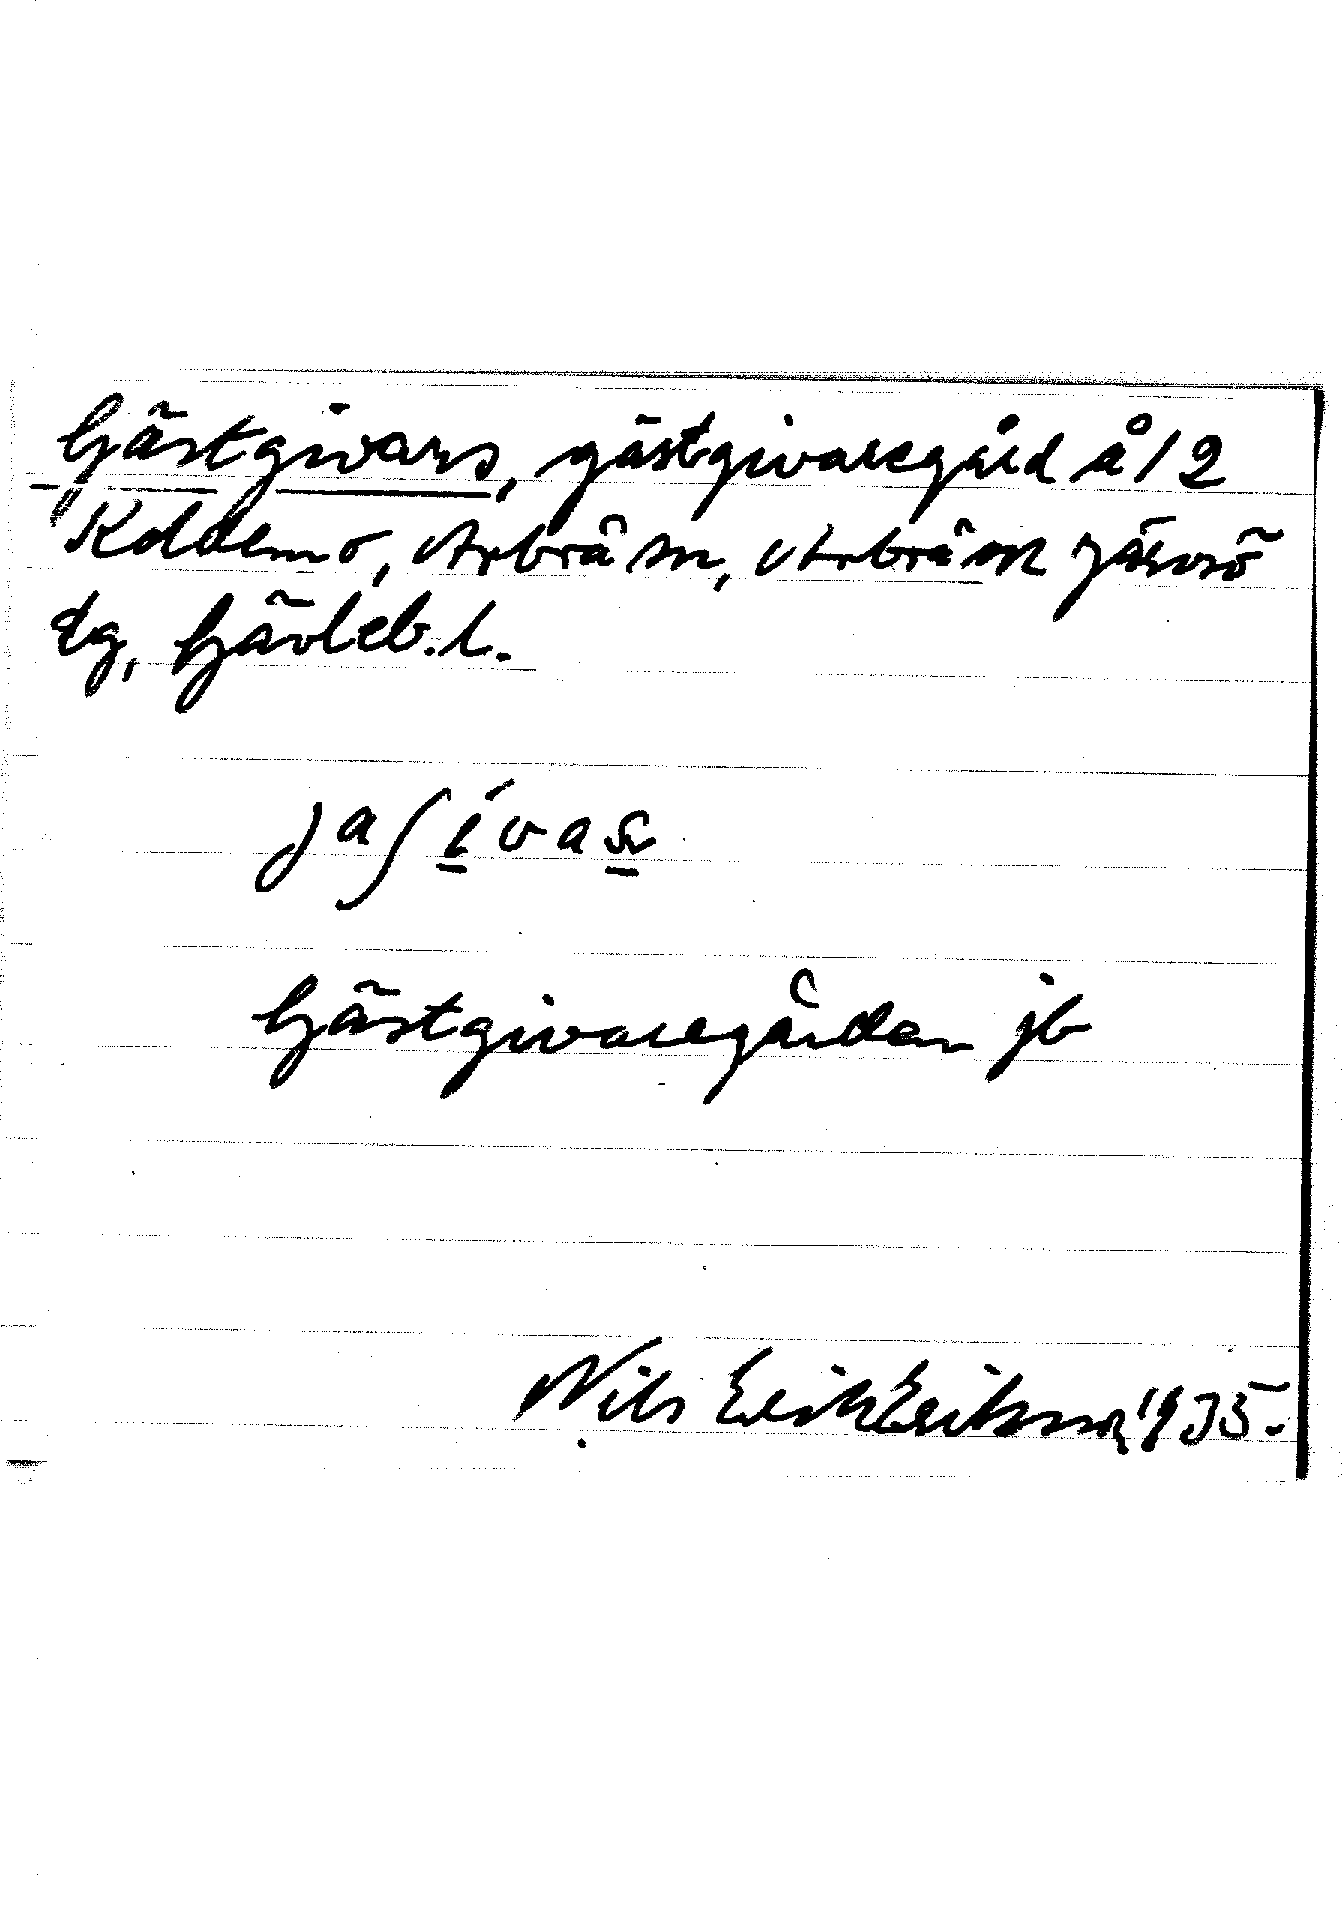 Gästgivars, gästgivaregård å 1 2
Koldemo, Arbrå sn, Arbrå ok Järvsö
tg, Gävleb. l.
jaʃívas
Gästgivaregården jb
Nils Erik Eriksson 1935.